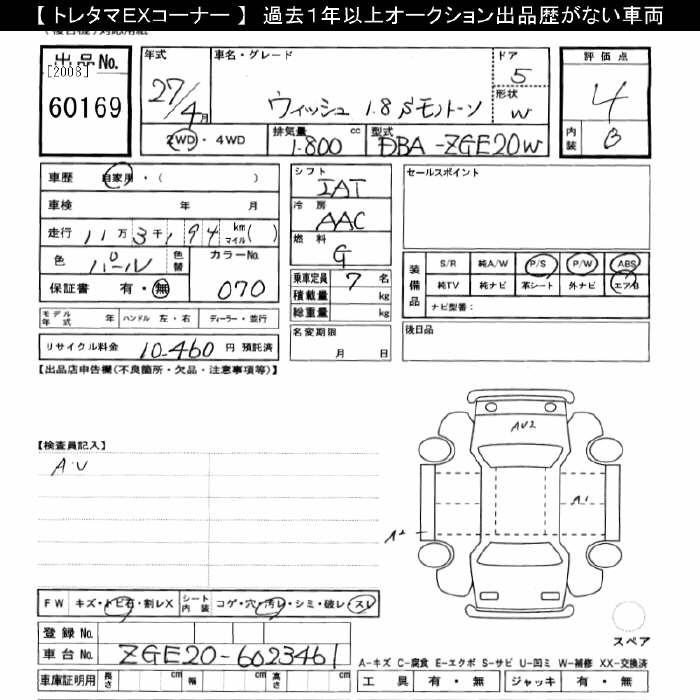 【 トレタマEXコーナー 】 過去1年以上オークション出品歴がない車両
出品No.
[2008]
60169
年式
27/4月
車名・グレード
ウィッシュ 1.8 Sモノトーン
ドア
5
形状
W
2WD・4WD
排気量 cc
1.800
型式
DBA-ZGE20W
評価点
4
内装
B
車歴 自家用・( )
車検 年 月
走行 11万3千194 km マイル( )
色 パール 色替
カラーNo.
070
保証書 有・無
シフト
IAT
冷房
AAC
燃料
G
乗車定員 7 名
積載量 kg
総重量 kg
セールスポイント
装備品
S/R 純A/W P/S P/W ABS
純TV 純ナビ 革シート 外ナビ エアB
ナビ型番:
モデル年式 年 ハンドル 左・右 ディーラー・並行
名変期限
月 日
後日品
リサイクル料金 10.460 円 預託済
【出品店申告欄(不良箇所・欠品・注意事項等)】
【検査員記入】
A・U
AU2
A1
A2
FW キズ・トビ石・割レX シート内装 コゲ・穴・汚レ・シミ・破レ・スレ
登録No.
車台No. ZGE20-6023461
車庫証明用 長さ cm 幅 cm 高さ cm
スペア
A-キズ C-腐食 E-エクボ S-サビ U-凹ミ W-補修 XX-交換済
工具 有・無 ジャッキ 有・無